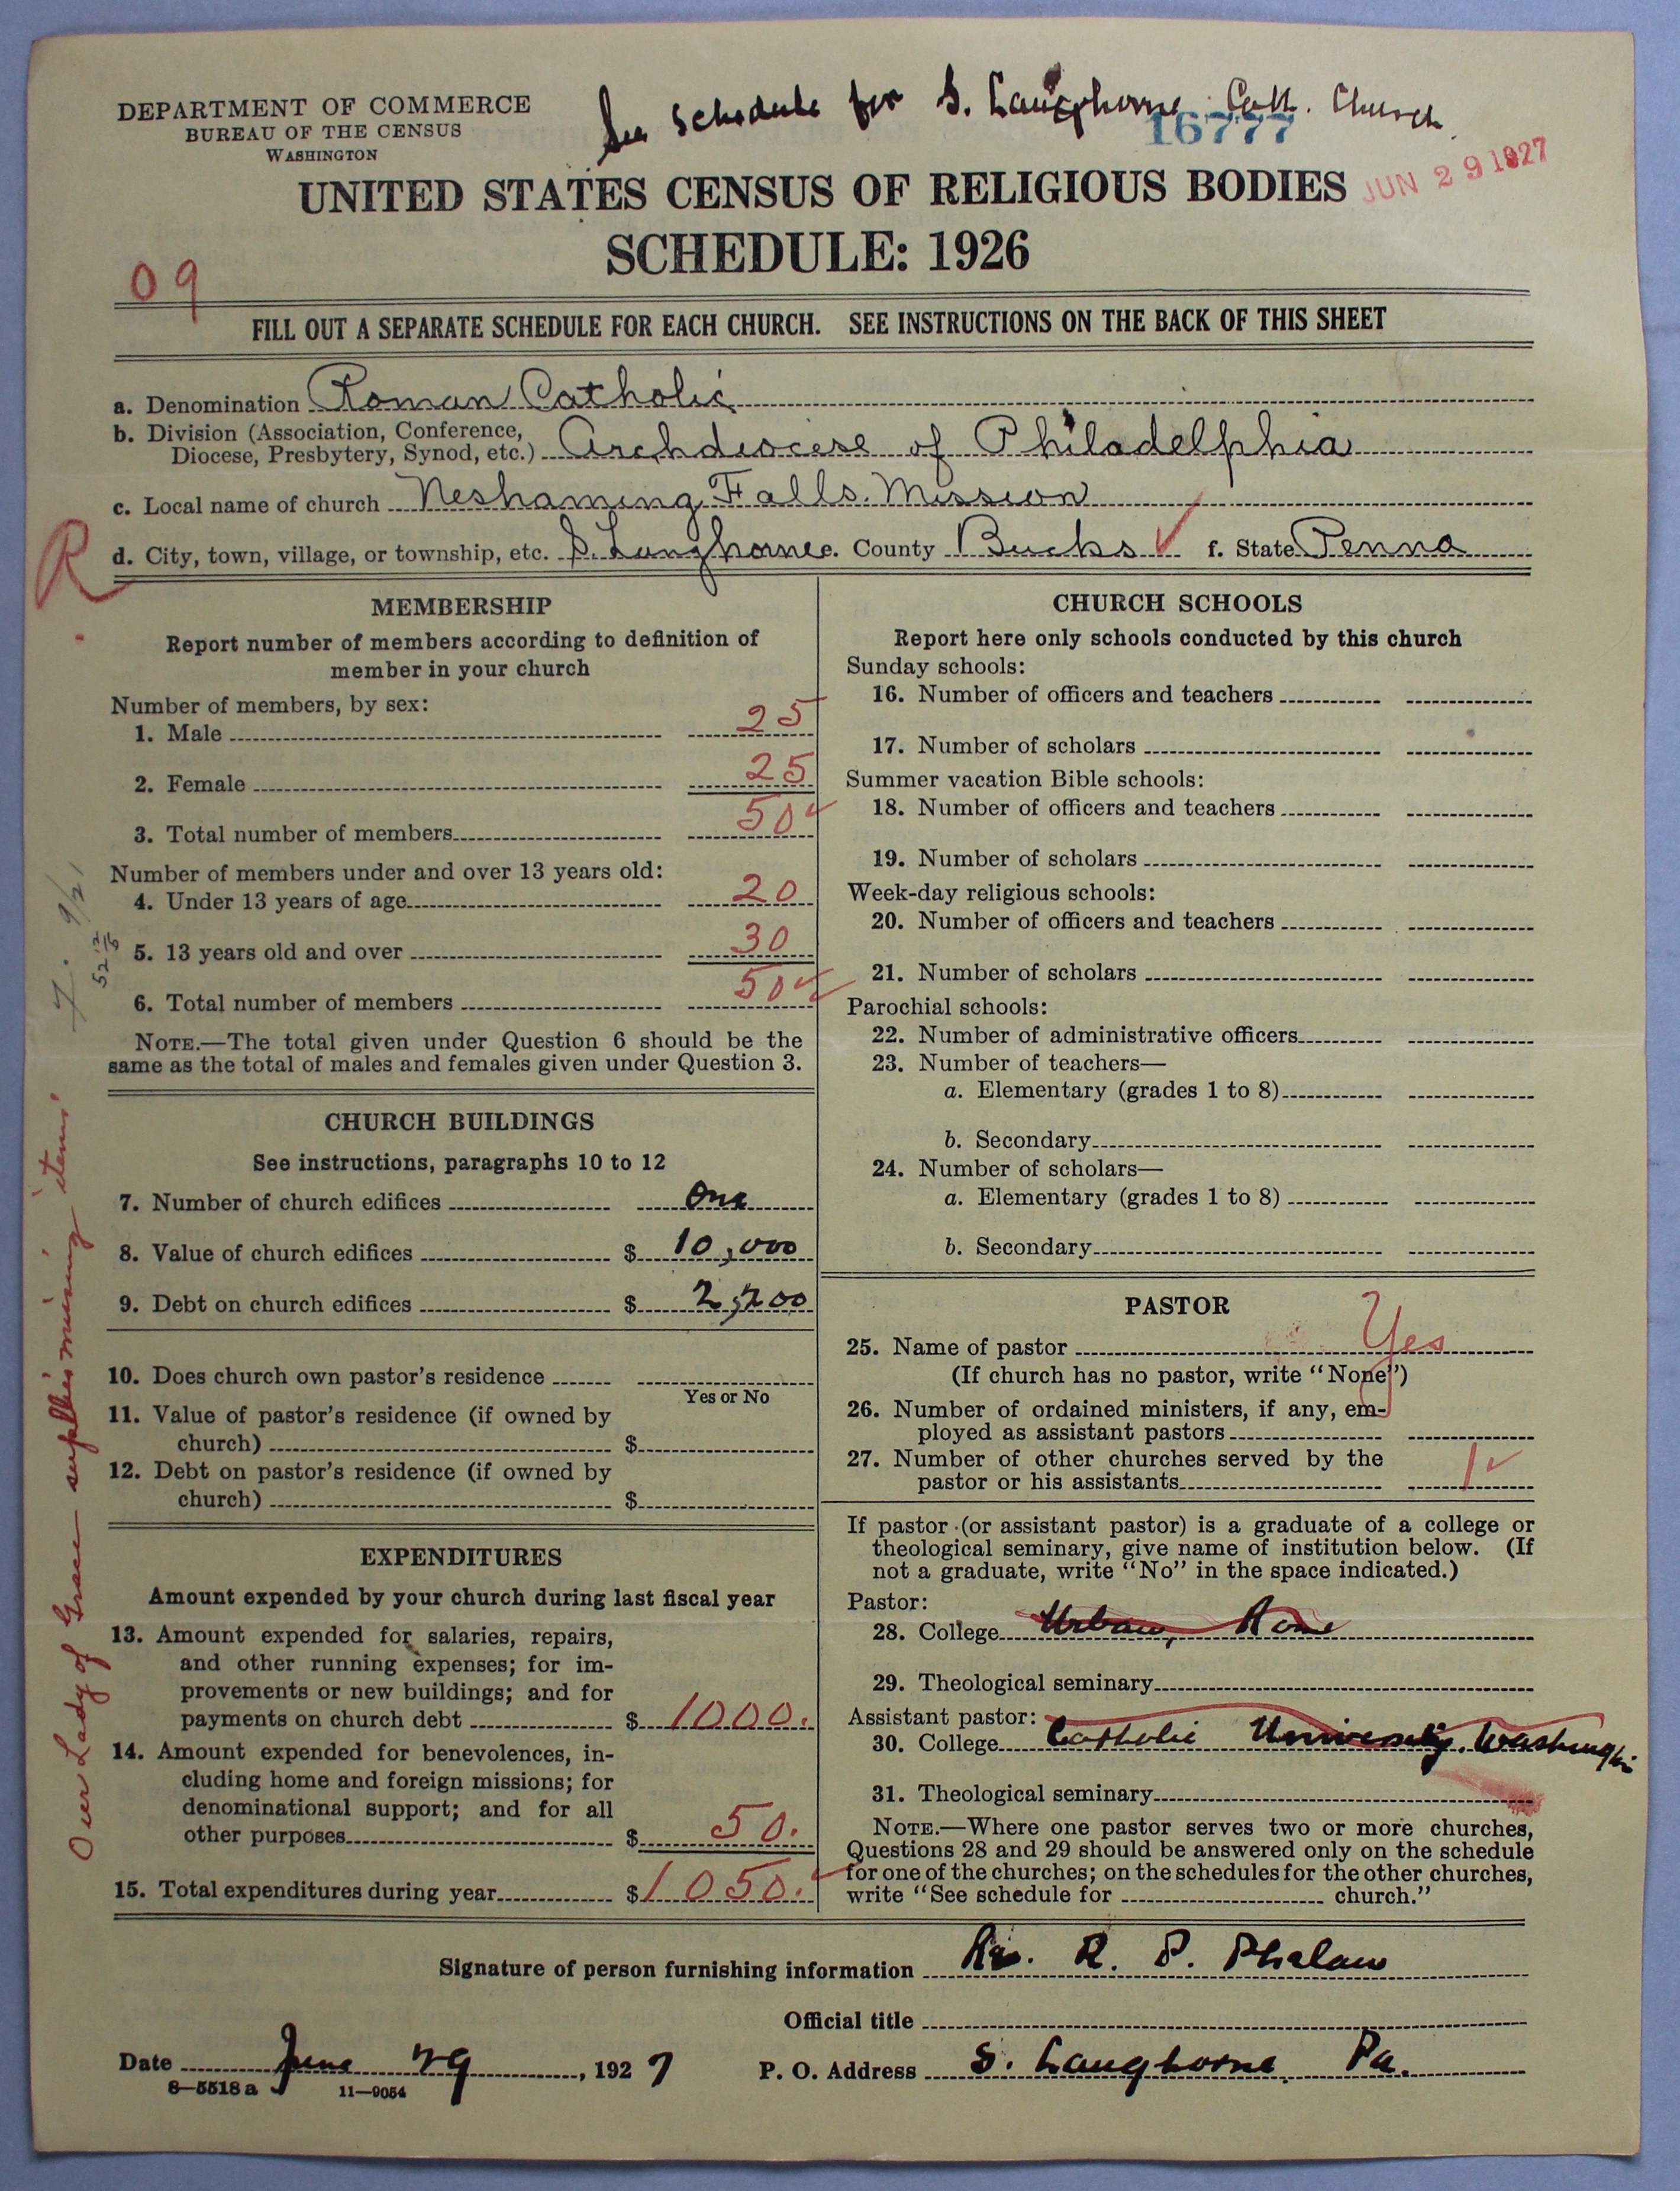 See schedule for S. Langhorne Cath. Church
DEPARTMENT OF COMMERCE
BUREAU OF THE CENSUS
WASHINGTON
16777
JUN 29 1927
UNITED STATES CENSUS OF RELIGIOUS BODIES
SCHEDULE: 1926
09
FILL OUT A SEPARATE SCHEDULE FOR EACH CHURCH. SEE INSTRUCTIONS ON THE BACK OF THIS SHEET
a. Denomination Roman Catholic
b. Division (Association, Conference, Diocese, Presbytery, Synod, etc.) Archdiocese of Philadelphia
c. Local name of church Neshaming Falls Mission
R
d. City, town, village, or township, etc. S. Langhorne e. County Bucks f. State Penna
MEMBERSHIP
Report number of members according to definition of
member in your church
Number of members, by sex:
1. Male 25
2. Female 25
3. Total number of members 50
Number of members under and over 13 years old:
4. Under 13 years of age 20
5. 13 years old and over 30
6. Total number of members 50
NOTE.—The total given under Question 6 should be the
same as the total of males and females given under Question 3.
CHURCH BUILDINGS
See instructions, paragraphs 10 to 12
7. Number of church edifices One
8. Value of church edifices $ 10,000
9. Debt on church edifices $ 2,200
10. Does church own pastor's residence
Yes or No
11. Value of pastor's residence (if owned by
church) $
12. Debt on pastor's residence (if owned by
church) $
EXPENDITURES
Amount expended by your church during last fiscal year
13. Amount expended for salaries, repairs,
and other running expenses; for im-
provements or new buildings; and for
payments on church debt $ 1000.
14. Amount expended for benevolences, in-
cluding home and foreign missions; for
denominational support; and for all
other purposes $ 50.
15. Total expenditures during year $ 1050.
Our Lady of Grace supplies missing items
CHURCH SCHOOLS
Report here only schools conducted by this church
Sunday schools:
16. Number of officers and teachers
17. Number of scholars
Summer vacation Bible schools:
18. Number of officers and teachers
19. Number of scholars
Week-day religious schools:
20. Number of officers and teachers
21. Number of scholars
Parochial schools:
22. Number of administrative officers
23. Number of teachers—
a. Elementary (grades 1 to 8)
b. Secondary
24. Number of scholars—
a. Elementary (grades 1 to 8)
b. Secondary
PASTOR
25. Name of pastor Yes
(If church has no pastor, write "None")
26. Number of ordained ministers, if any, em-
ployed as assistant pastors
27. Number of other churches served by the
pastor or his assistants 1
If pastor (or assistant pastor) is a graduate of a college or
theological seminary, give name of institution below. (If
not a graduate, write "No" in the space indicated.)
Pastor:
28. College Urban, Rome
29. Theological seminary
Assistant pastor:
30. College Catholic University, Washington
31. Theological seminary
NOTE.—Where one pastor serves two or more churches,
Questions 28 and 29 should be answered only on the schedule
for one of the churches; on the schedules for the other churches,
write "See schedule for church."
Signature of person furnishing information Rev. R. P. Phelan
Official title
Date June 29, 1927 P. O. Address S. Langhorne, Pa.
8—5518 a 11—9054